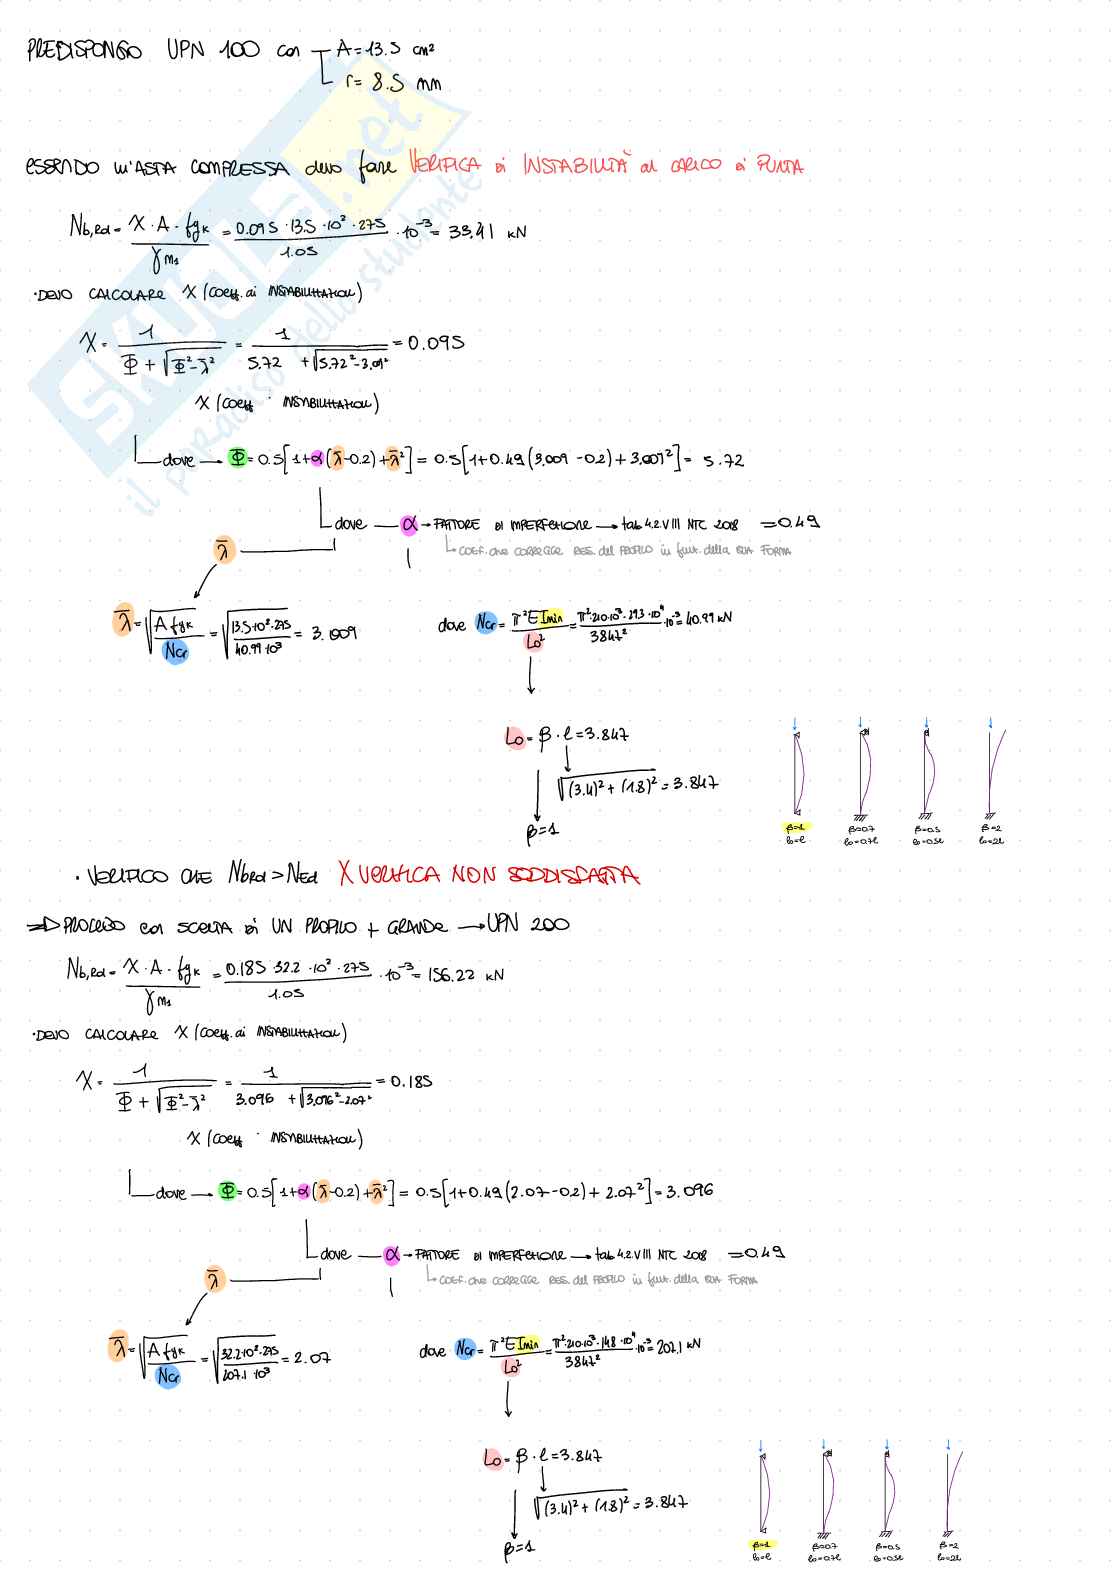 PREDISPONGO UPN 100 con A = 13.5 cm²
r = 8.5 mm
ESSENDO un'ASTA COMPRESSA devo fare VERIFICA di INSTABILITÀ al CARICO di PUNTA
Nb,Rd = χ · A · fyk / γM1 = 0.095 · 13.5 · 10² · 275 / 1.05 · 10⁻³ = 33.41 kN
· DEVO CALCOLARE χ (coeff. di INSTABILITATION)
χ = 1 / Φ + √Φ² - λ̄² = 1 / 5.72 + √5.72² - 3.01² = 0.095
χ (coeff · INSTABILITATION)
dove → Φ = 0.5 [1 + α (λ̄ - 0.2) + λ̄²] = 0.5 [1 + 0.49 (3.009 - 0.2) + 3.009²] = 5.72
dove — α → FATTORE DI IMPERFEZIONE → tab 4.2.VIII NTC 2018 = 0.49
COEF. che CORREGGE RES. del PROFILO in funz. della SUA FORMA
λ̄
λ̄ = √A fyk / Ncr = √13.5·10²·275 / 40.99·10³ = 3.009
dove Ncr = π² E Imin / Lo² = π²·210·10³·29.3·10⁴ / 3847² · 10⁻³ = 40.99 kN
Lo = β · l = 3.847
√(3.4)² + (1.8)² = 3.847
β = 1
β=1 β=0.7 β=0.5 β=2
lo=l lo=0.7l lo=0.5l lo=2l
· VERIFICO CHE NbRd > NEd X VERIFICA NON SODDISFATTA
⇒ PROCEDO con SCELTA di UN PROFILO + GRANDE → UPN 200
Nb,Rd = χ · A · fyk / γM1 = 0.185 · 32.2 · 10² · 275 / 1.05 · 10⁻³ = 156.22 kN
· DEVO CALCOLARE χ (coeff. di INSTABILITATION)
χ = 1 / Φ + √Φ² - λ̄² = 1 / 3.096 + √3.096² - 2.07² = 0.185
χ (coeff · INSTABILITATION)
dove → Φ = 0.5 [1 + α (λ̄ - 0.2) + λ̄²] = 0.5 [1 + 0.49 (2.07 - 0.2) + 2.07²] = 3.096
dove — α → FATTORE DI IMPERFEZIONE → tab 4.2.VIII NTC 2018 = 0.49
COEF. che CORREGGE RES. del PROFILO in funz. della SUA FORMA
λ̄
λ̄ = √A fyk / Ncr = √32.2·10²·275 / 207.1·10³ = 2.07
dove Ncr = π² E Imin / Lo² = π²·210·10³·148·10⁴ / 3847² · 10⁻³ = 207.1 kN
Lo = β · l = 3.847
√(3.4)² + (1.8)² = 3.847
β = 1
β=1 β=0.7 β=0.5 β=2
lo=l lo=0.7l lo=0.5l lo=2l
SKUOLA.net
il paradiso dello studente